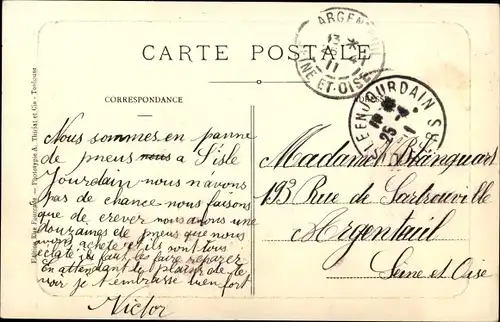 CARTE POSTALE
CORRESPONDANCE
Nous sommes en panne
de pneus nous a l'isle
Jourdain nous n'avons
pas de chance nous faisons
que de crever nous avons une
douzaings de pneus que nous
avons acheté et ils sont tous
éclaté ils faut les faire reparer
En attendant le plaisir de te
voir je t'embrasse bien fort
Victor
Madame Blanquart
193 Rue de Sartrouville
Argentauil
Seine et Oise
ARGENTEUIL
13
11
SEINE ET OISE
L'ISLE EN JOURDAIN
25
Phototypie A. Thiriat et Cie - Toulouse